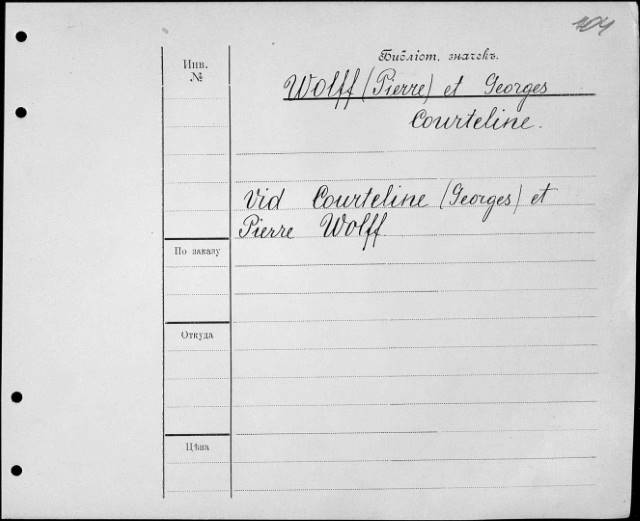 404
Библіот. значекъ.
Инв.
№
Wolff (Pierre) et Georges
Courteline.
Vid Courteline (Georges) et
Pierre Wolff.
По заказу
Откуда
Цѣна